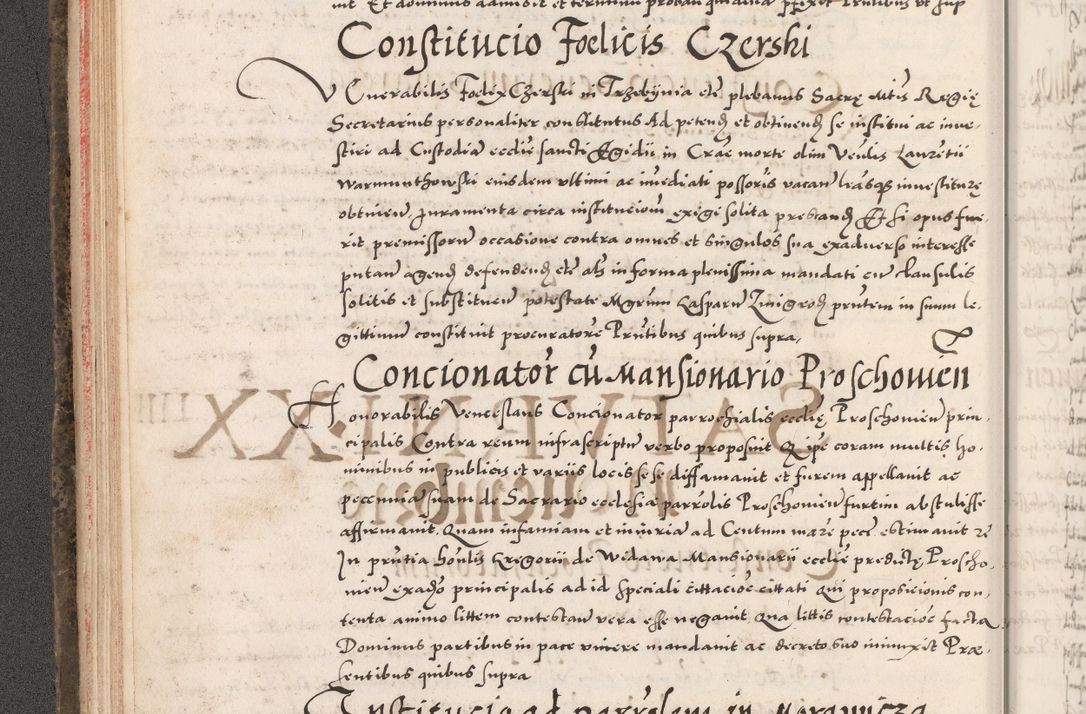 Constitucio Foelicis Czerski
Venerabilis Foelix Czerski in Trzebynia etc plebanus Sacrę Mtis Regię
Secretarius personaliter constitutus Ad petend et obtinend se institui ac inve-
stiri ad Custodia ecclie sancti Egidii in Crac morte olim Venlis Laurentii
Warmunthowski eiusdem ultimi ac imediati possoris vacan lrasq investiturę
obtinen Juramenta circa institucioni exigi solita prestand Et si opus fue-
rit premissorum occasione contra omnes et singulos sua exadverso interesse
putan agend defendend etc als in forma plenissima mandati cu clausulis
solitis et substituen potestate Mgrum Casparum Zmigrod prntem in suum le-
gittimum constituit procuratore Prntibus quibus supra
Concionator cu Mansionario Proschowien
Honorabilis Venceslaus Concionator parrochialis ecclię Proschowien prin-
cipalis Contra reum infrascriptu verbo proposuit Q ipe coram multis ho-
minibus in publicis et variis locis sese diffamavit et furem appellavit ac
pecunia suam de Sacrario ecclesia parrolis Proschowien furtim abstulisse
affirmavit. Quam infamiam et iniuriam ad Centum marc pecc estimavit
In prntia honlis Gregorii de Widawa Mansionarii ecclie predictę Proscho-
wien exadso principalis ad id speciali cittacioe cittati Qui proposicionis con-
tenta animo littem contestan vera esse negavit Qua littis contestacioe facta
Dominus partibus in pace vivere mandavit ac decreto suo iniunxit Prae-
sentibus quibus supra
Institucio ad parrolem in Morawicza